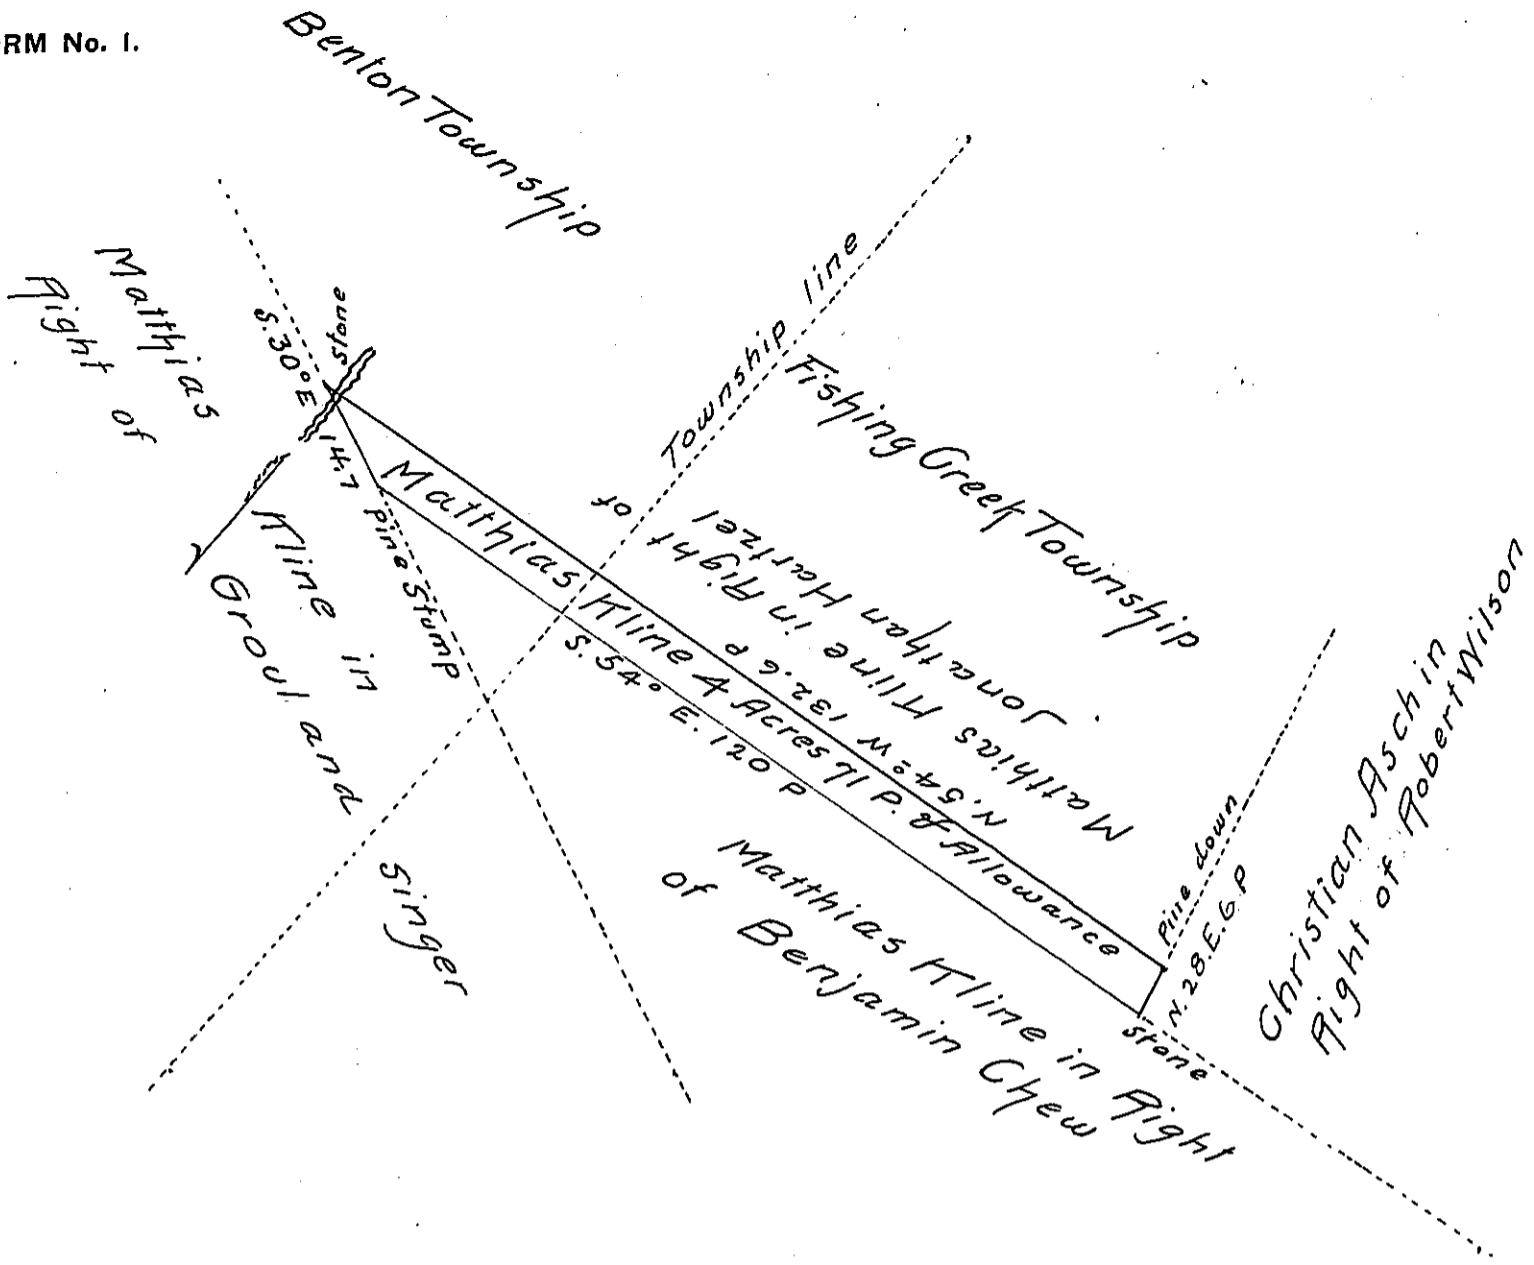 RM No. 1.
Benton Township
Township line
Fishing Creek Township
Matthias
Right of
Kline in
Groul and
Singer
S. 30° E 14.7
Stone
Pine Stump
Matthias Kline 4 Acres 71 P. & Allowance
S. 54° E. 120 P
N. 54° W 132.6 P
Matthias Kline in Right of
Jonathan Heartzel
Matthias Kline in Right
of Benjamin Chew
Pine down
N. 28. E. 6. P
Stone
Christian Asch in
Right of Robert Wilson